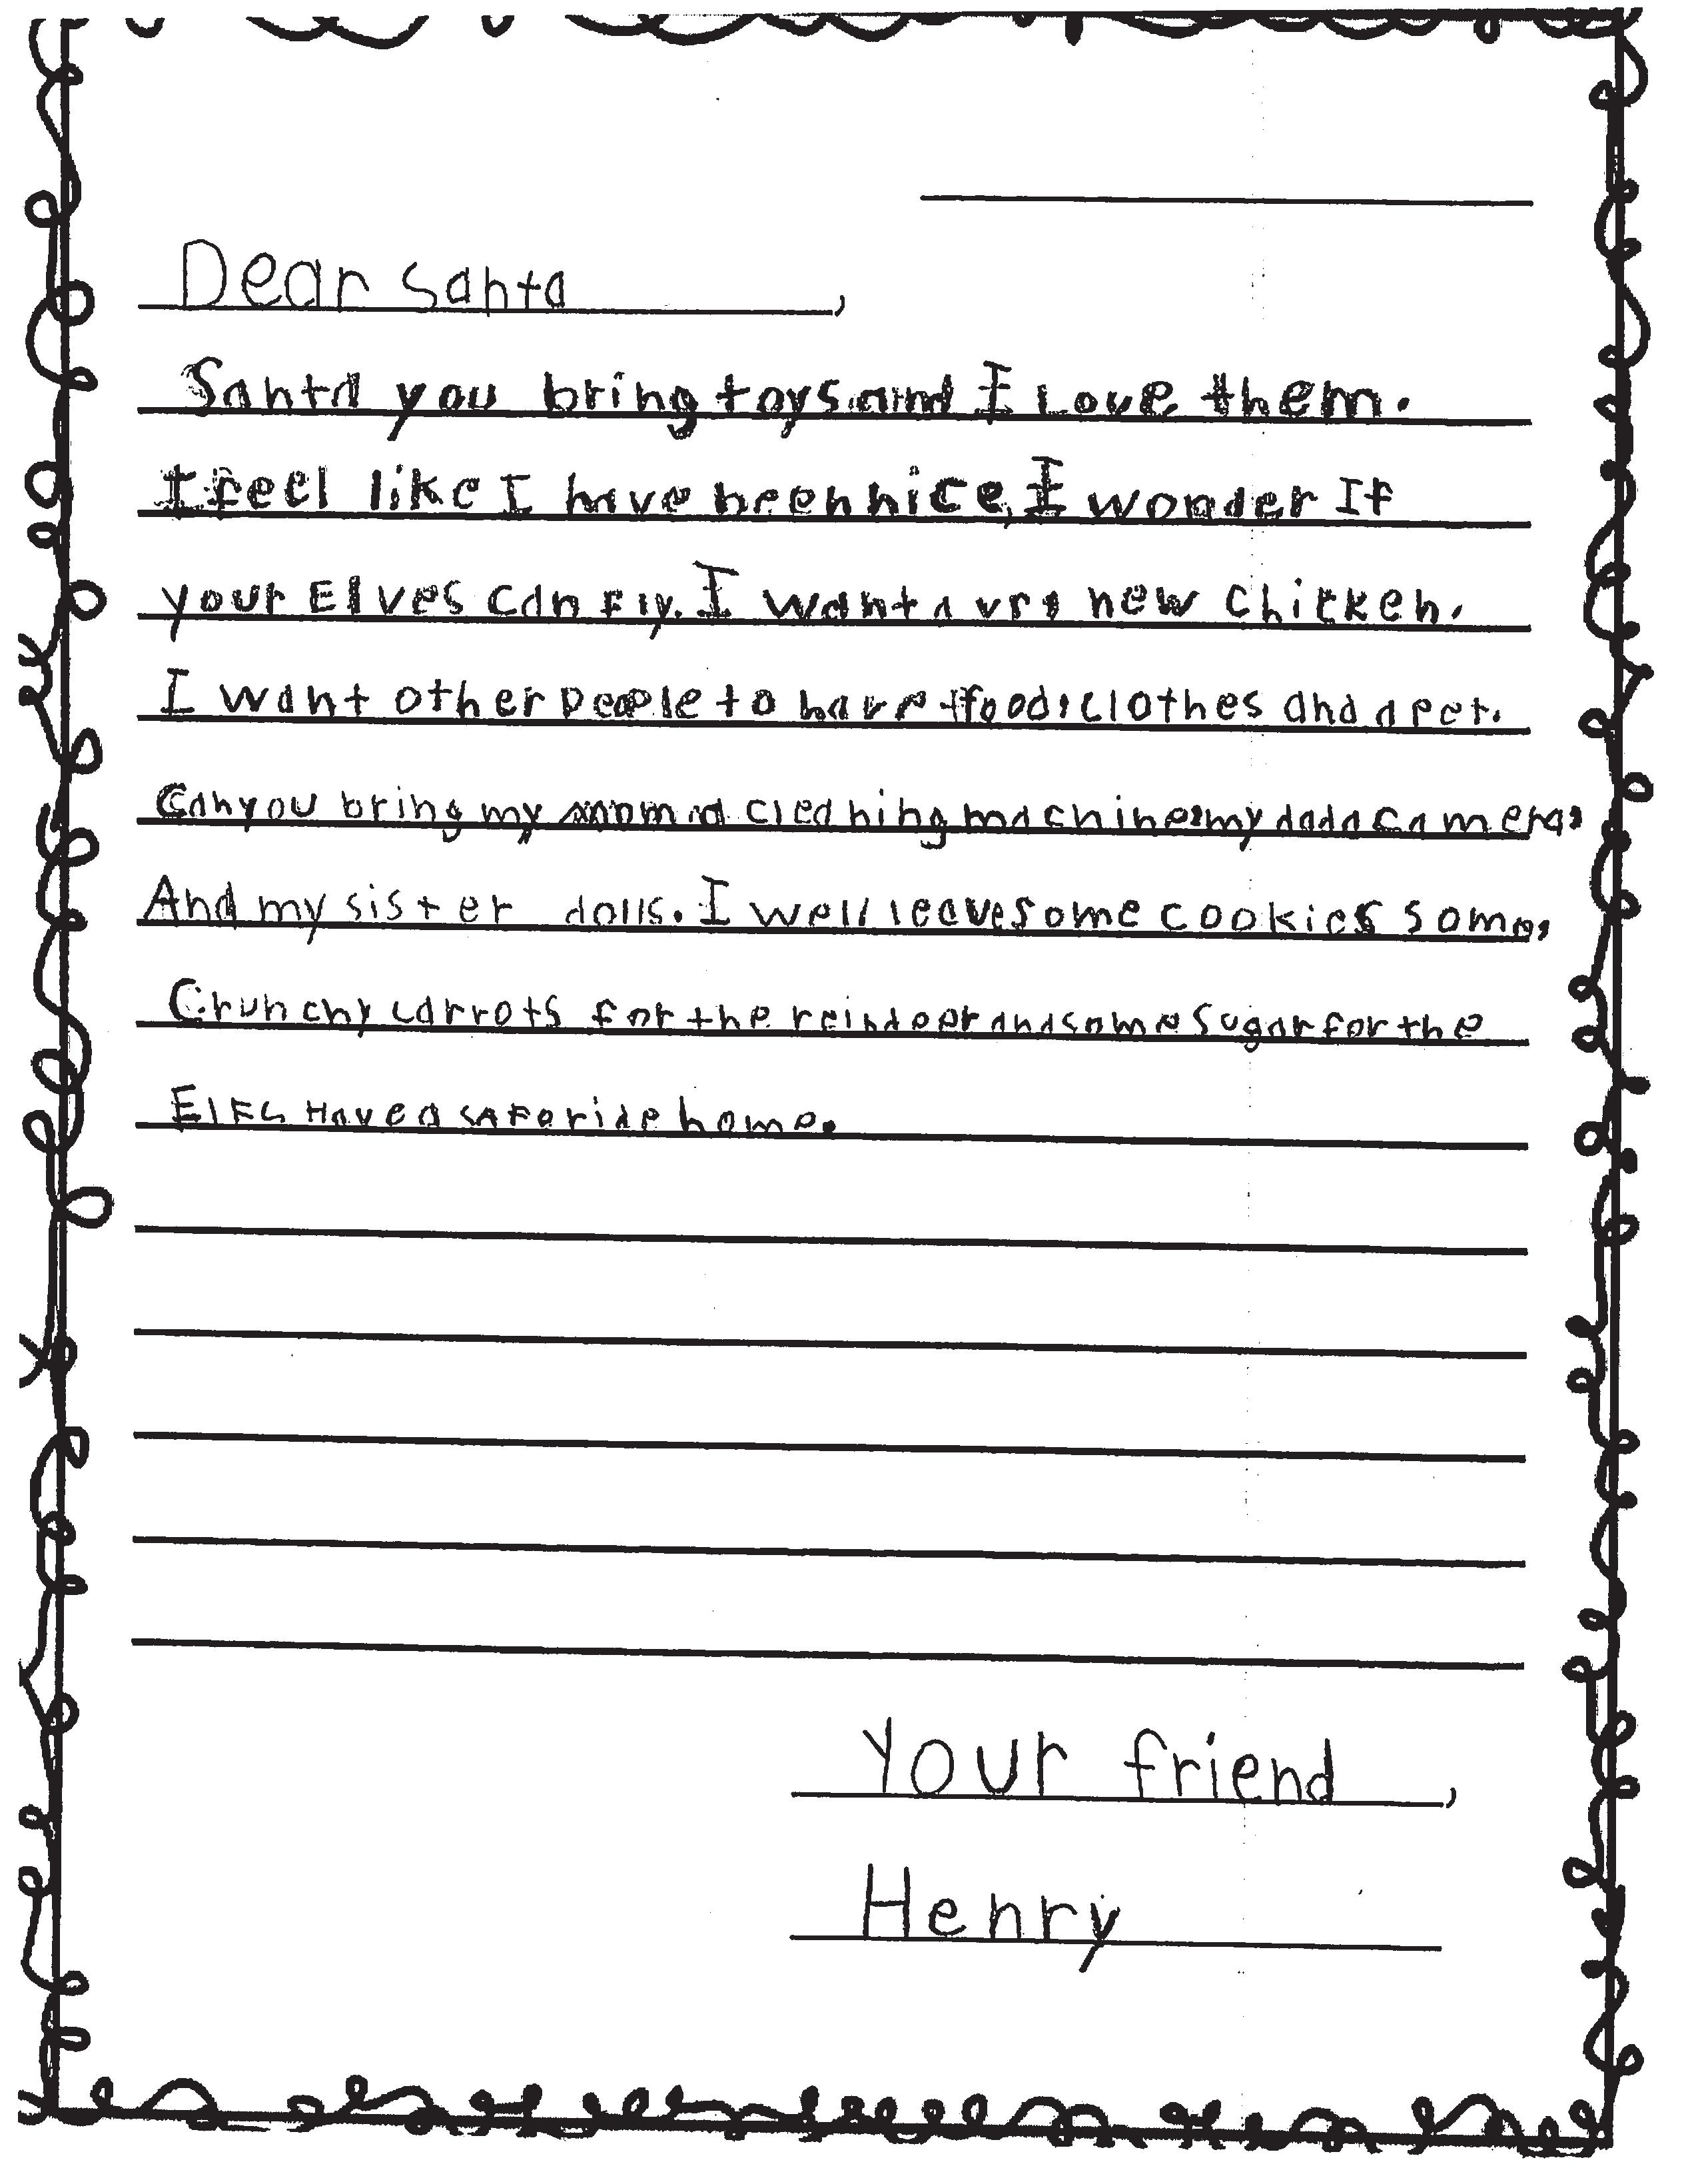 Dear Santa,
Santa you bring toys and I Love them.
I feel like I have been nice, I wonder If
your Elves can Fly. I want a vr, new chicken.
I want other people to have food, clothes and a pet.
Can you bring my mom a cleaning machine, my dad a camera,
And my sister dolls. I well leave some cookies some,
Crunchy carrots for the reindeer and some Sugar for the
ElFs Have a saFe ride home.
Your friend,
Henry